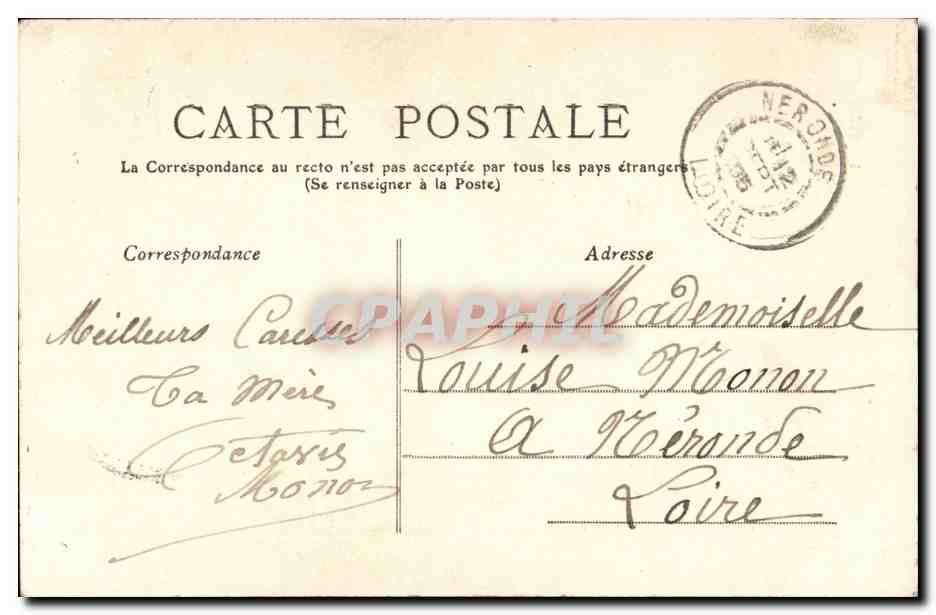 CARTE POSTALE
La Correspondance au recto n'est pas acceptée par tous les pays étrangers
(Se renseigner à la Poste)
NERONDE
SEPT
05
LOIRE
Correspondance
Adresse
Meilleurs Caresses
Ta Mère
Octavie
Monon
CPAPHIL
Mademoiselle
Louise Monon
A Néronde
Loire